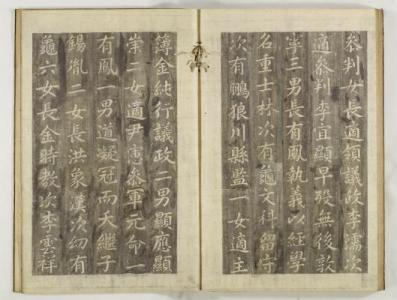 叅判女長適領議政李濡次
適叅判李宜顯早殁無後敦
寧三男長有鳳執義以經學
名重士林次有龜文科留守
次有鵬狼川縣監一女適主
簿金純行議政二男顯應顯
崇二女適尹憲叅軍元命一
有鳳一男道凝冠而夭繼子
錫胤二女長洪象漢次幼有
龜六女長金時敎次李祥